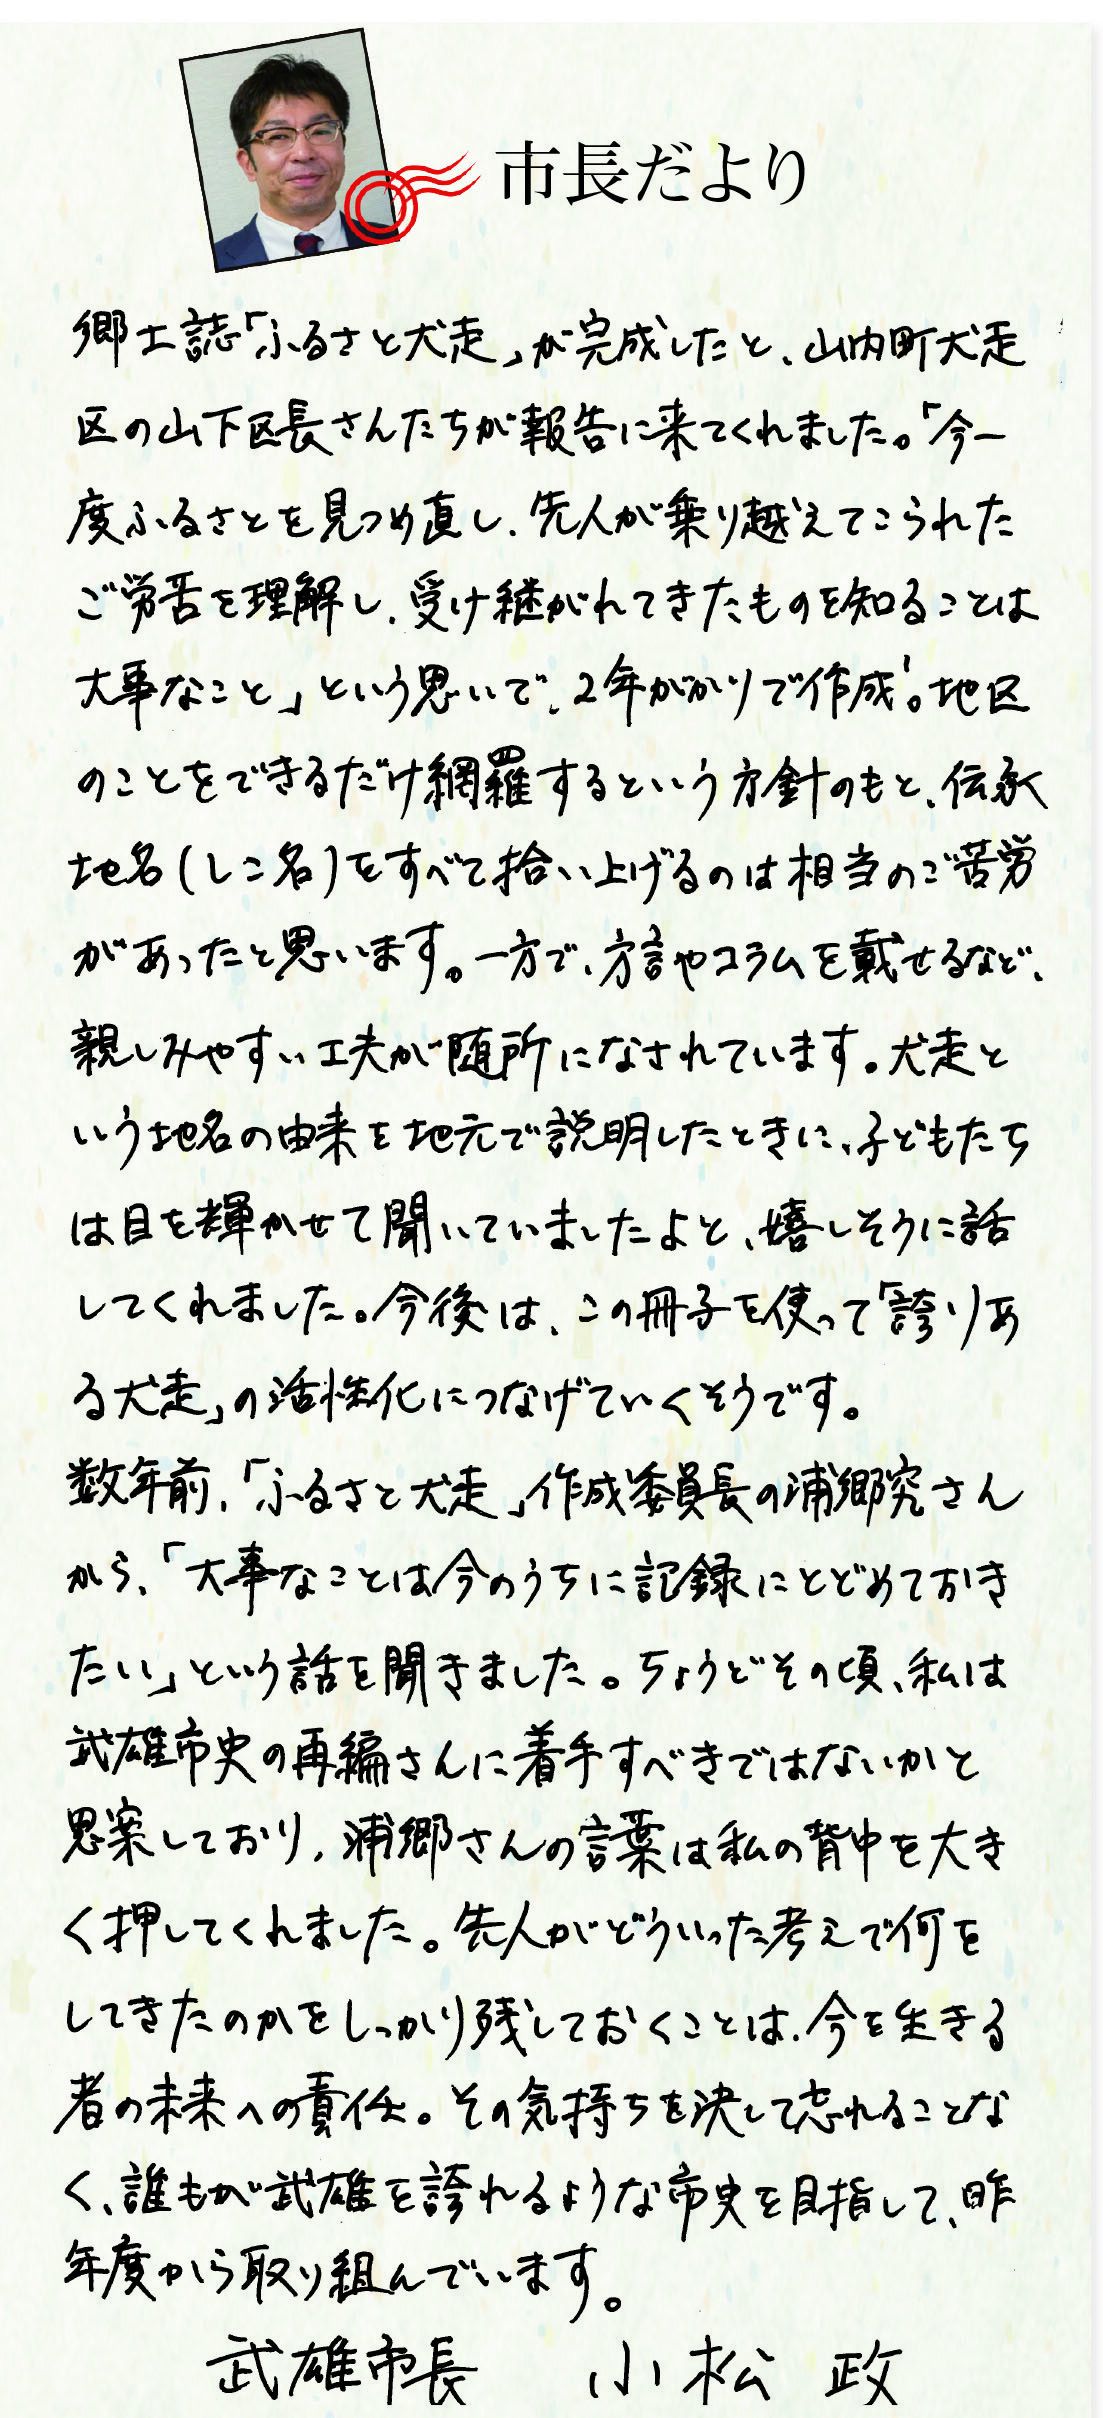 市長だより
郷土誌「ふるさと犬走」が完成したと、山内町犬走
区の山下区長さんたちが報告に来てくれました。「今一
度ふるさとを見つめ直し、先人が乗り越えてこられた
ご労苦を理解し、受け継がれてきたものを知ることは
大事なこと」という思いで、2年がかりで作成。地区
のことをできるだけ網羅するという方針のもと、伝承
地名(しこ名)をすべて拾い上げるのは相当のご苦労
があったと思います。一方で、方言やコラムを載せるなど、
親しみやすい工夫が随所になされています。犬走と
いう地名の由来を地元で説明したときに、子どもたち
は目を輝かせて聞いていましたよと、嬉しそうに話
してくれました。今後は、この冊子を使って「誇りあ
る犬走」の活性化につなげていくそうです。
数年前、「ふるさと犬走」作成委員長の浦郷究さん
から、「大事なことは今のうちに記録にとどめておき
たい」という話を聞きました。ちょうどその頃、私は
武雄市史の再編さんに着手すべきではないかと
思案しており、浦郷さんの言葉は私の背中を大き
く押してくれました。先人がどういった考えで何を
してきたのかをしっかり残しておくことは、今を生きる
者の未来への責任。その気持ちを決して忘れることな
く、誰もが武雄を誇れるような市史を目指して、昨
年度から取り組んでいます。
武雄市長 小松 政